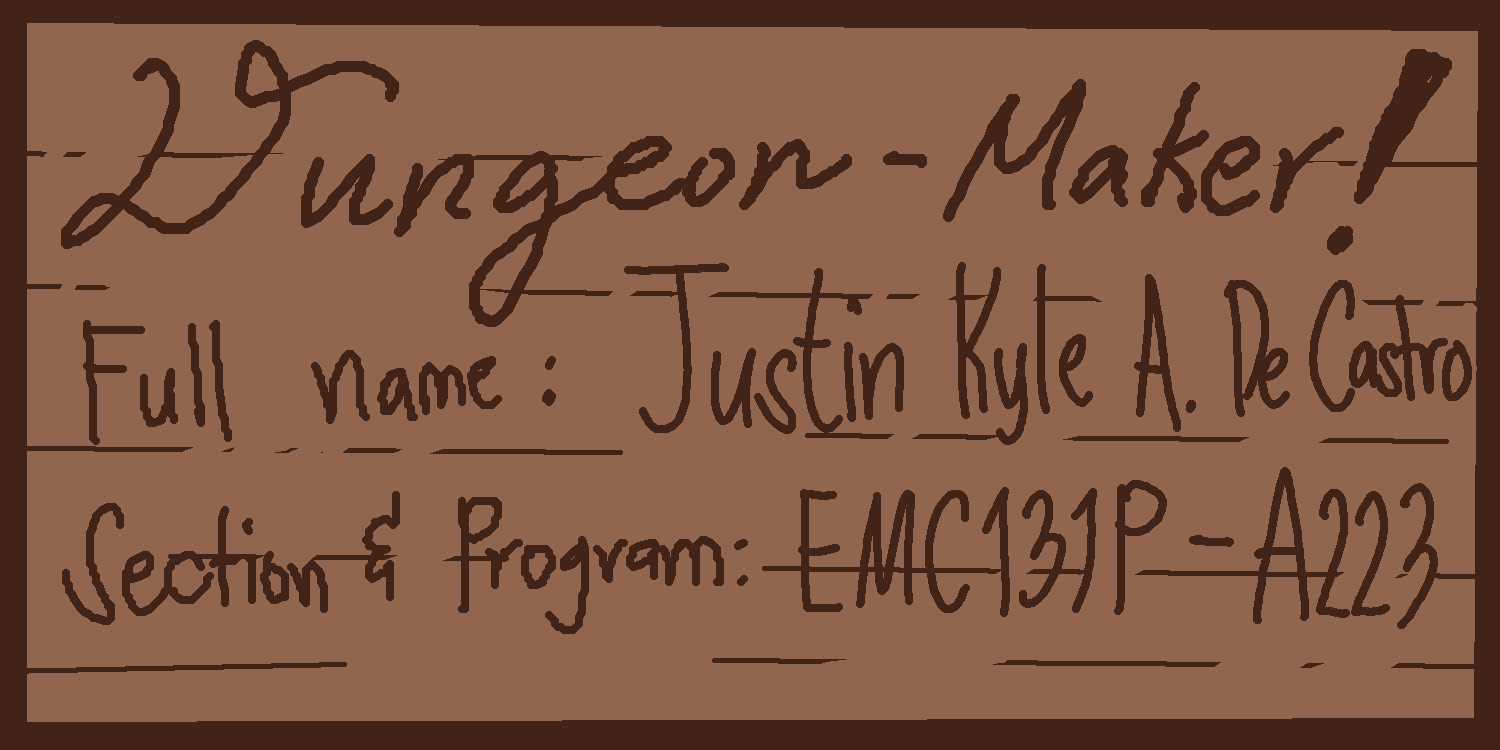 Dungeon-Maker!
Full name: Justin Kyle A. De Castro
Section & Program: EMC131P-A223